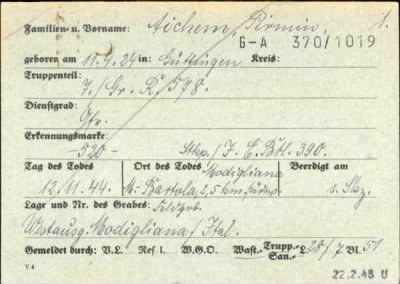 Familien- u. Vorname: Aichem, Pirmin, 1.
G-A 370/1019
geboren am 11.4.24 in: Güttingen Kreis:
Truppenteil:
7./Gr. R. 578.
Dienstgrad:
Gfr.
Erkennungsmarke:
-520- Stkp./J. E. Btl. 390.
Tag des Todes Ort des Todes Modigliana Beerdigt am
12.11.44. M. Bartola, 2,5 km s. Skz.
Lage und Nr. des Grabes: Feldgrb.
Westausg. Modigliana/Ital.
Gemeldet durch: V.L. Ref L. W.G.O. Wast.- Trupp.- San.- L. 28/7 Bl. 51
V 4
22.2.45 U